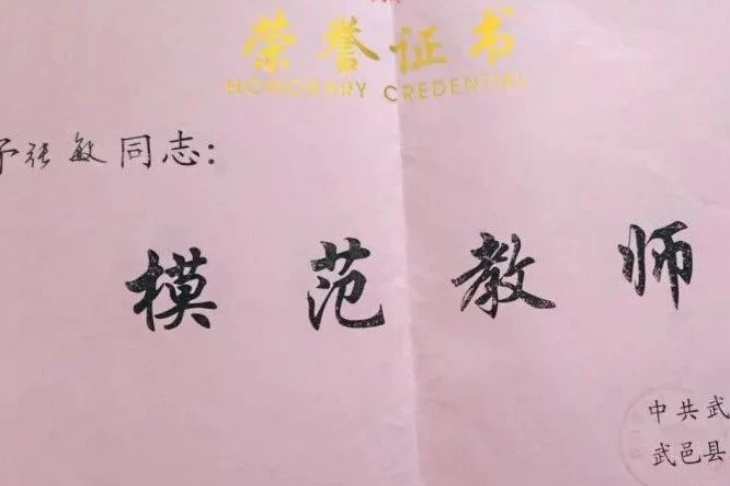 荣誉证书
HONORARY CREDENTIAL
予张敏同志：
模范教师
中共武
武邑县